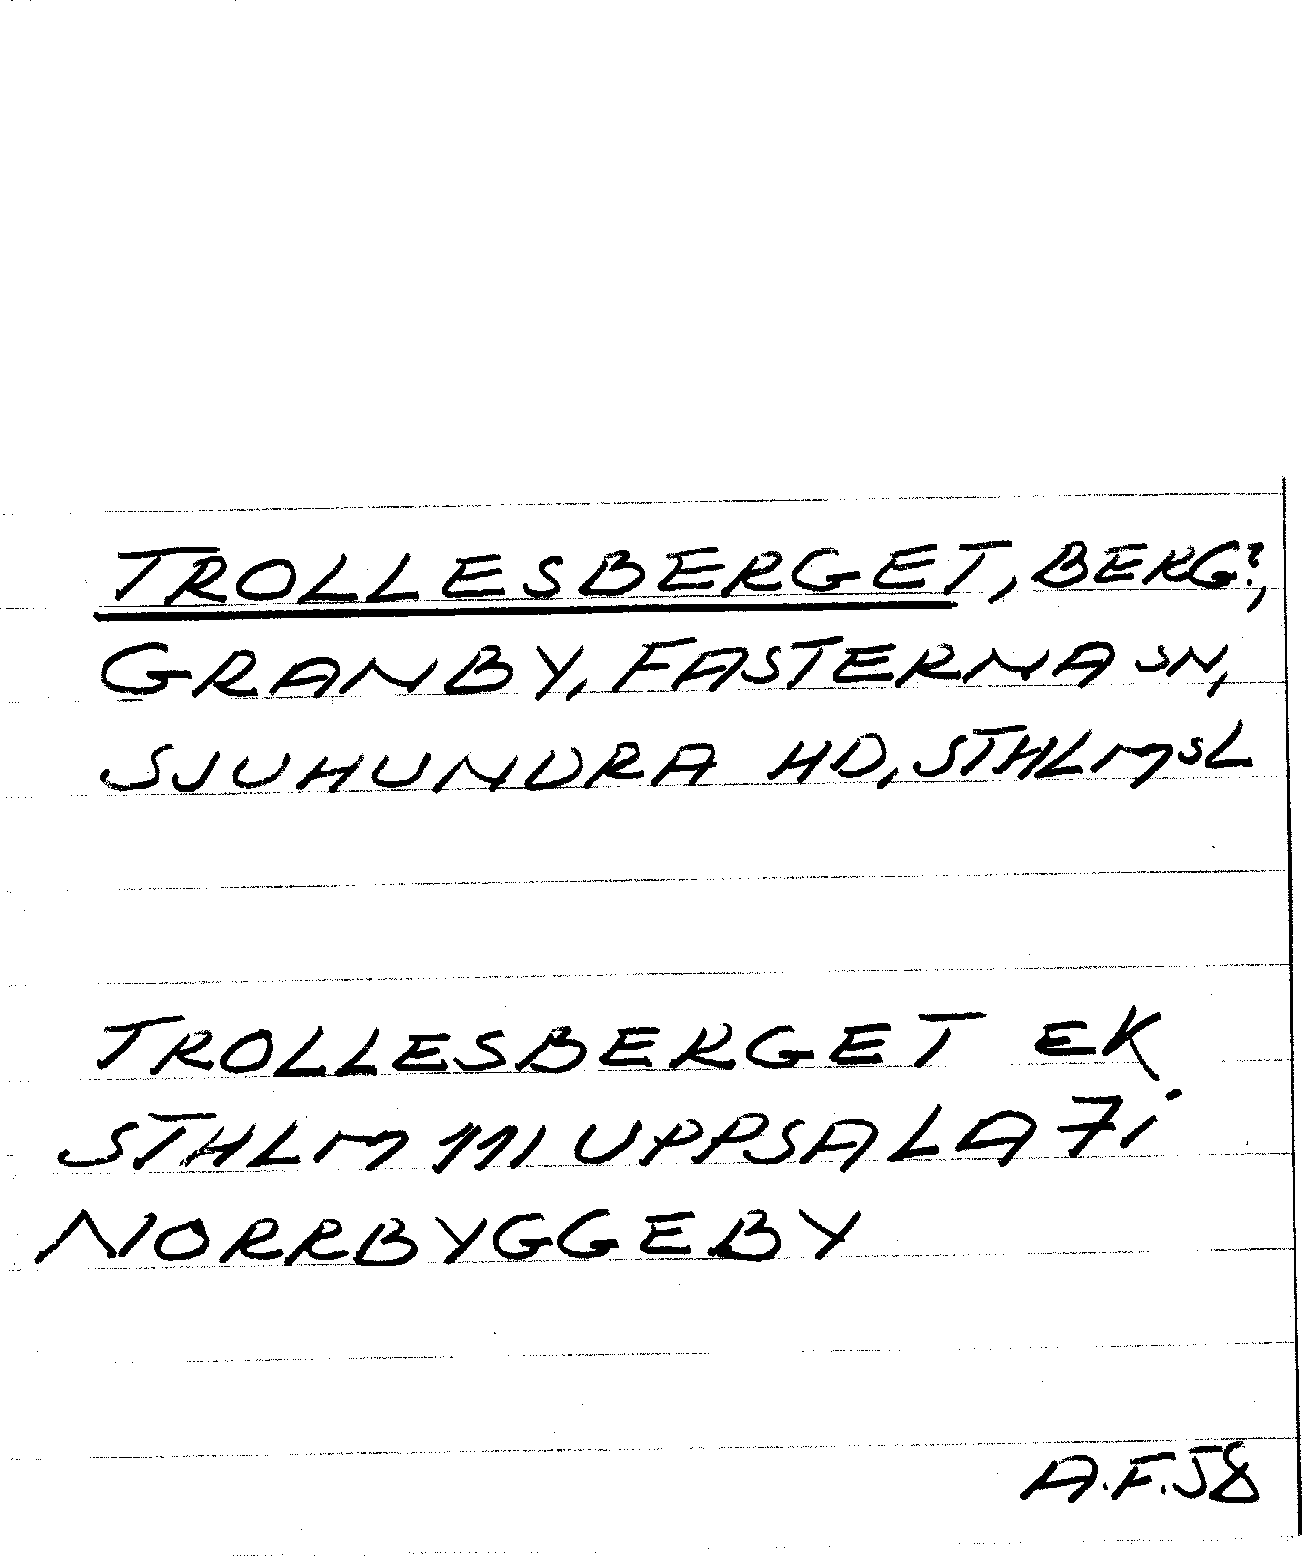 TROLLESBERGET, BERG?,
GRANBY, FASTERNA SN,
SJUHUNDRA HD, STHLMSL
TROLLESBERGET EK
STHLM 111 UPPSALA 7i
NORRBYGGEBY
A.F.58